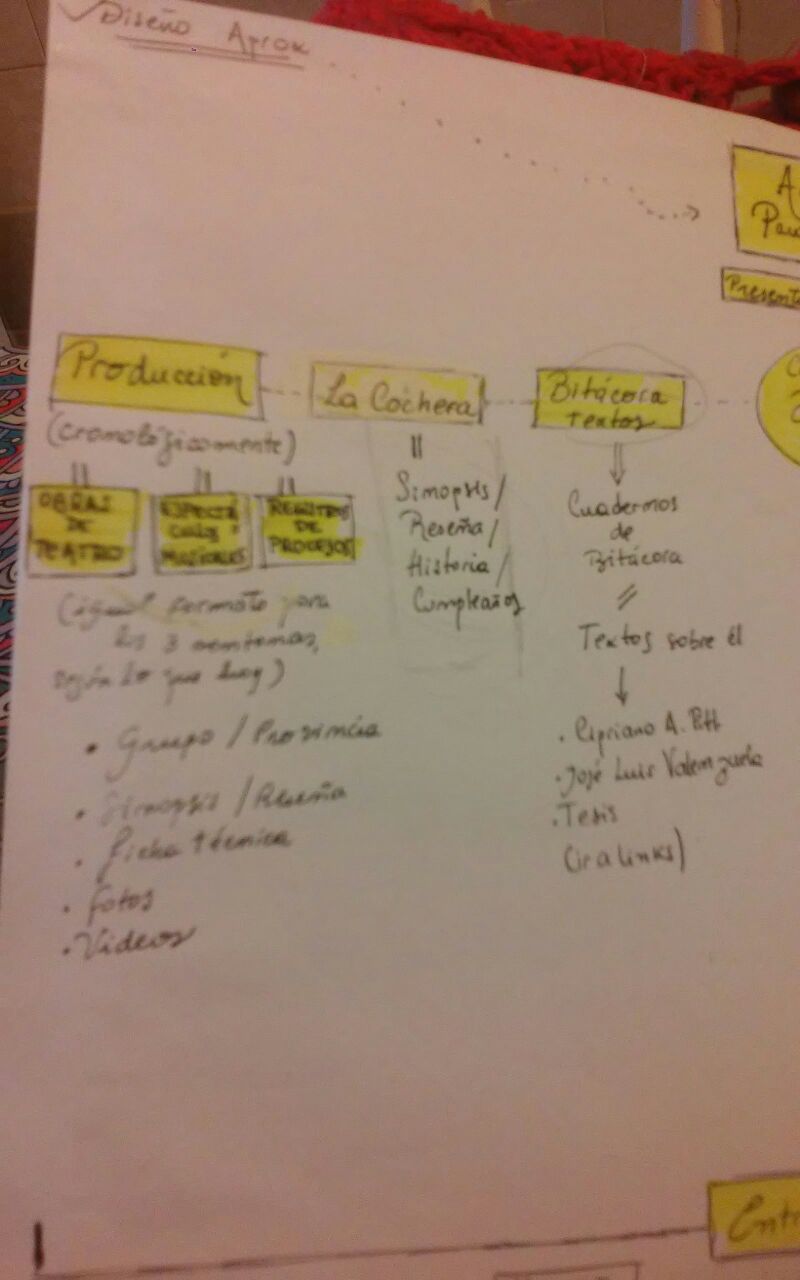 Diseño Aprox
A
Pau
Present
Producción
(cromológicamente)
OBRAS
DE
TEATRO
ESPECTÁ
CULOS
MUSICALES
REGISTROS
DE
PROCESOS
(igual formato para
los 3
según lo que hay)
• Grupo / Provincia
• Sinopsis / Reseña
• ficha técnica
• fotos
• Videos
La Cochera
Sinopsis /
Reseña /
Historia /
Cumpleaños
Bitácora
Textos
Cuadernos
de
Bitácora
Textos sobre él
• Cipriano A. Pitt
• José Luis Valenzuela
• Tesis
(ir a links)
Entr